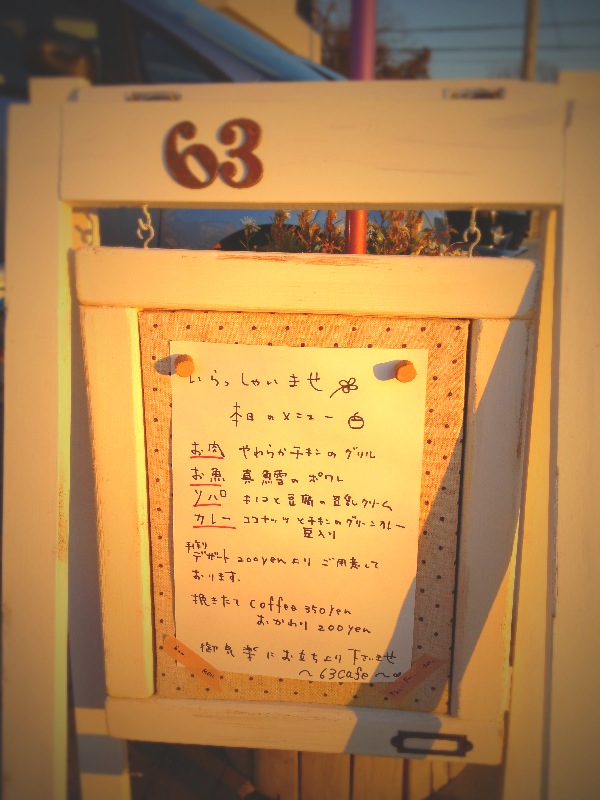 63
いらっしゃいませ
本日のメニュー
お肉 やわらかチキンのグリル
お魚 真鱈のポワレ
ソパ キノコと豆腐の豆乳クリーム
カレー ココナッツとチキンのグリーンカレー
豆入り
手作り
デザート 200yenより ご用意して
おります。
挽きたて Coffee 350yen
おかわり 200yen
御気楽にお立ち寄り下さいませ
〜63cafe〜